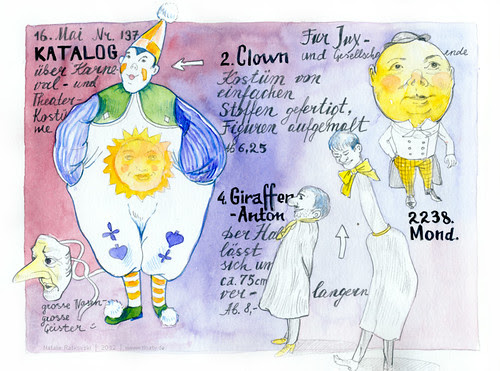 16. Mai Nr. 137
KATALOG
über Karne-
val- und
Theater-
Kostü
me
2. Clown
Kostüm von
einfachen
Stoffen gefertigt,
Figuren aufgemalt
Ab 6,25
Für Jux-
und Gesellscha
ende
4. Giraffen
-Anton
Der Hal
lässt
sich um
ca. 75cm
ver-
längern
Ab. 8,-
2238.
Mond.
grosse
grosse
Geister